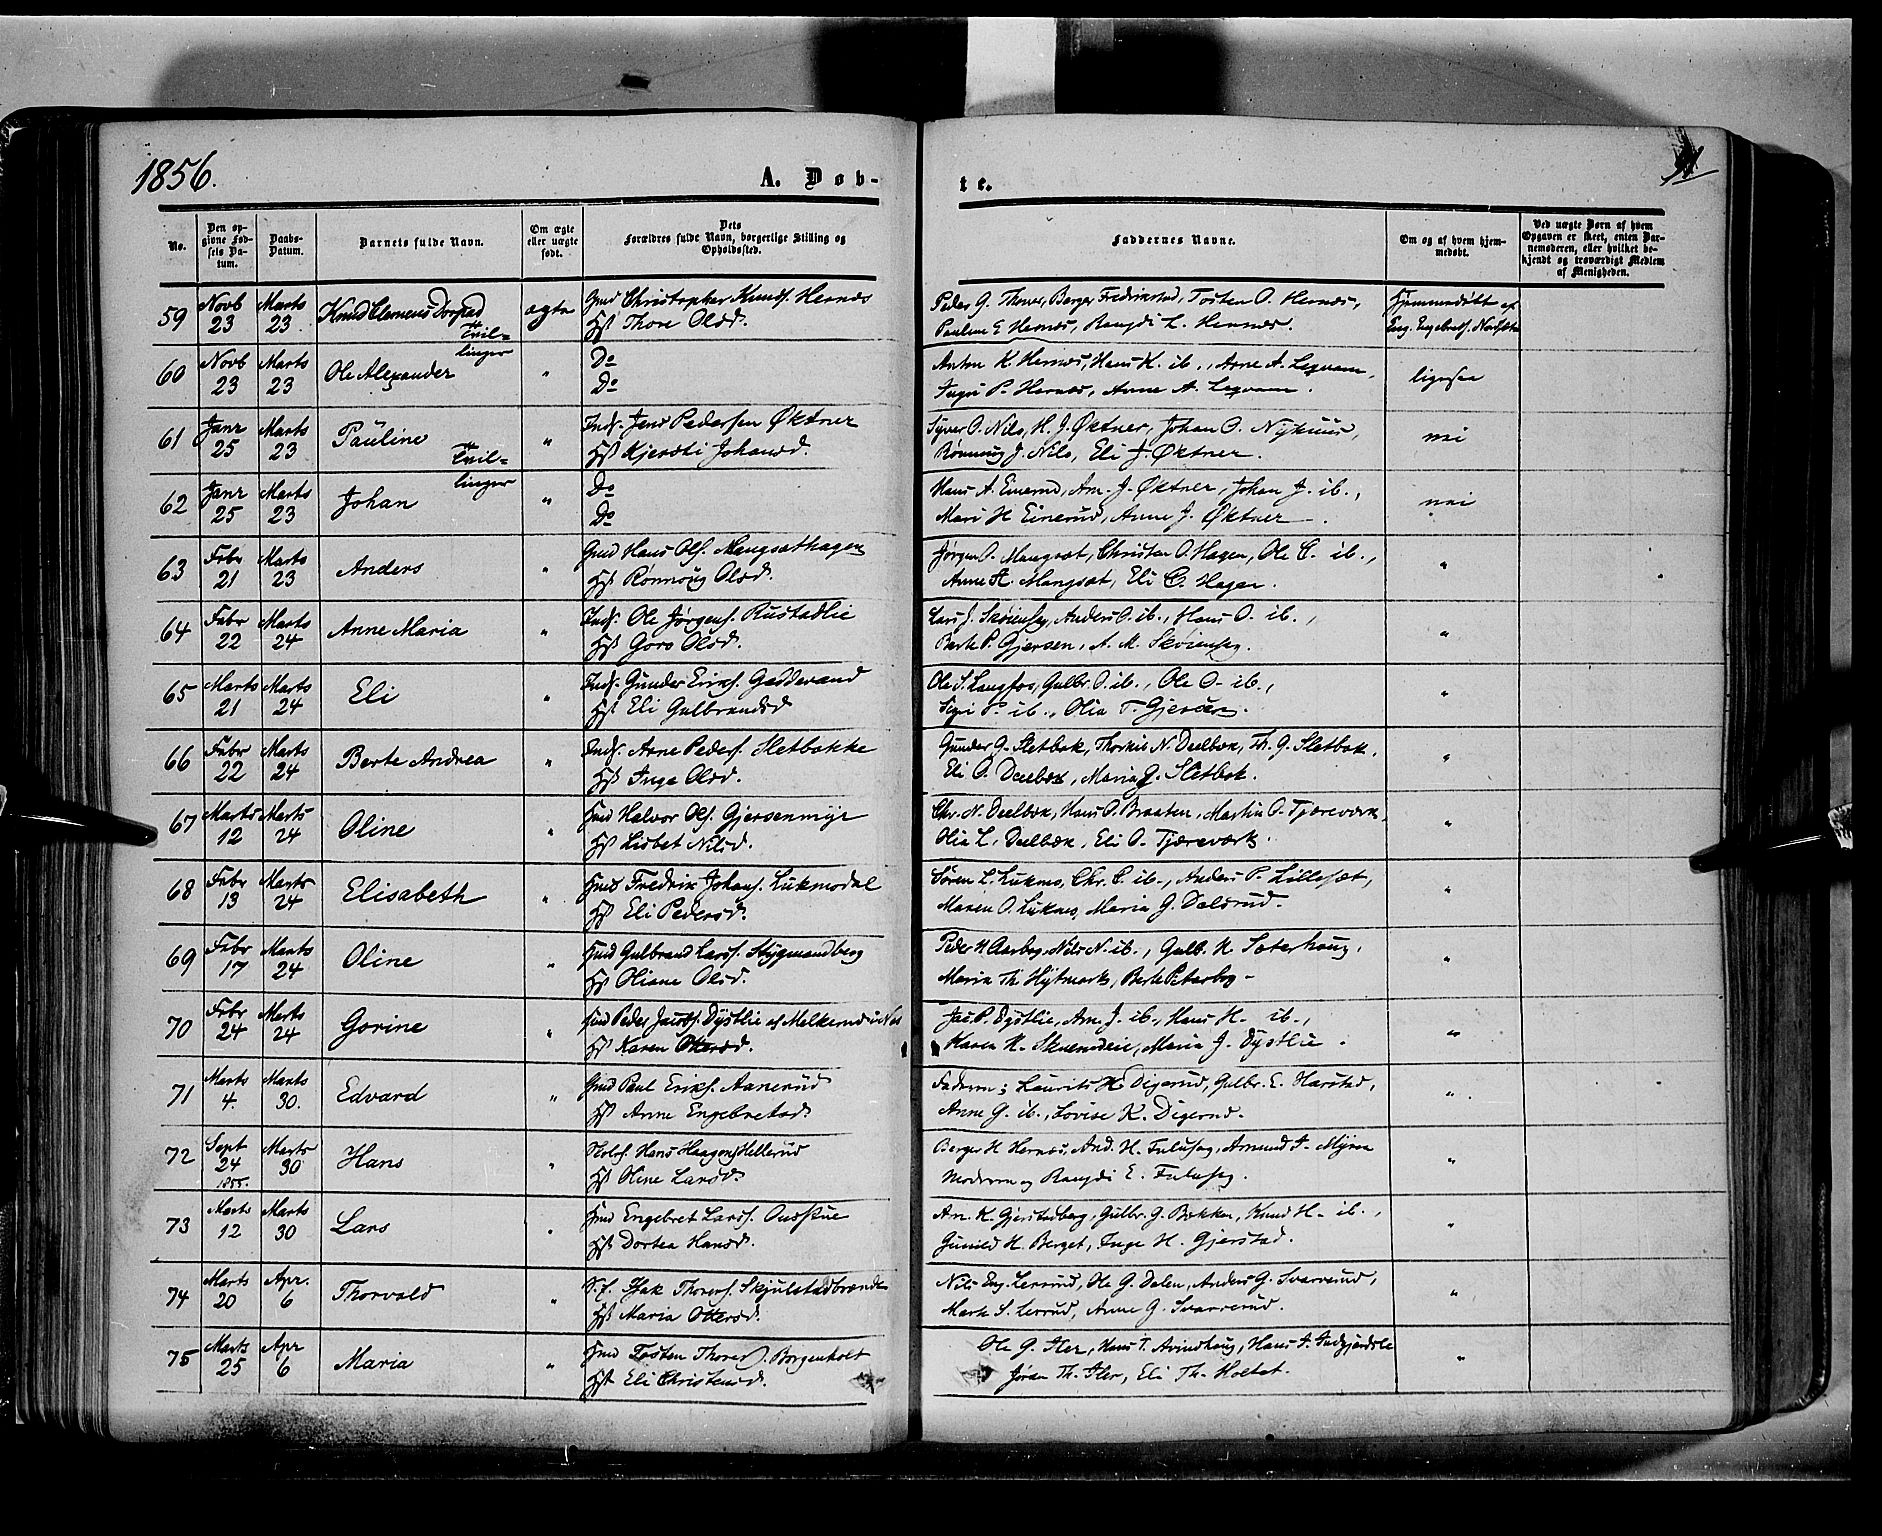 1856.
A. Døb-
te.
No.
Den opgivne Fødsels Datum.
Daabs-Datum.
Barnets fulde Navn.
Om ægte eller uægte født.
Dets Forældres fulde Navn, borgerlige Stilling og Opholdssted.
Faddernes Navne.
Om og af hvem hjemmedøbt.
Ved uægte Børn af hvem Opgaven er skeet, enten Barnemoderen, eller hvilket bekjendt og troværdigt Medlem af Menigheden.
59 Novb 23 Marts 23 Knud Clemens ægte Gmd Christopher Knuds. Hernæs
Hst Thore Olsd.
Peder G. Berger Fredrikstad, Tosten O. Hernæs,
Pauline E Hernæs, Rangdi L. Hernæs.
Hjemmedøbt af
Tvil-
linger
60 Novb 23 Marts 23 Ole Alexander " Do
Do
Anton K. Hernæs, Hans K. ib., Arne A.
P. Hernæs, Anne A.
ligesaa
61 Janr 25 Marts 23 Pauline " Inds. Jens Pedersen Øktner
Hst Kjersti Johansd.
Syver O. Nilo, H. J. Øktner, Johan O.
J. Nilo, Eli J. Øktner.
nei
Tvil-
linger
62 Janr 25 Marts 23 Johan " Do
Do
Hans A. Einerud, Am. J. Øktner, Johan J. ib.,
Mari H Einerud, Anne J. Øktner.
nei
63 Febr 21 Marts 23 Anders " Gmd Hans Ols. Mangsethagen
Hst Rønnoug Olsd.
Jørgen O. Mangset, Christen O. Hagen, Ole C. ib.,
Anne H. Mangset, Eli C. Hagen.
"
64 Febr 22 Marts 24 Anne Maria " Inds. Ole Jørgens. Rustadlie
Hst Goro Olsd.
Lars J. Anders O. ib., Hans O. ib.,
Berte P. Gjersen, A. M.
"
65 Marts 21 Marts 24 Eli " Inds. Gunder Eriks. Gaddevand
Hst Eli Gulbrandsd
Ole S. Langfos, Gulbr. O. ib., Ole O. ib.,
Sigri P. ib., Olia T. Gjersen.
"
66 Febr 22 Marts 24 Berte Andrea " Inds. Arne Peders. Sletbakke
Hst Inge Olsd.
Gunder G. Sletbak, Thorkil N. Deelbæk, Th. G. Sletbak,
Eli O. Deelbæk, Maria G. Sletbak.
"
67 Marts 12 Marts 24 Oline " Gmd Halvor Ols. Gjersenmyr
Hst Lisbet Nilsd.
Chr. N. Deelbæk, Hans O. Braaten, Martin O. Tjæreværk,
Olia L. Deelbæk, Eli O. Tjæreværk.
"
68 Febr 13 Marts 24 Elisabeth " Gmd Fredrik Johans. Lukmodal
Hst Eli Pedersd.
Søren L. Lukmo, Chr. C. ib., Anders P. Lilleset,
Maren O. Lukmo, Maria G. Dalsrud.
"
69 Febr 17 Marts 24 Oline " Gmd Gulbrand Larss. Stygmandberg
Hst Oliane Olsd.
Peder H Aarberg, Nils N. ib., Gulb. K Sæterhaug,
Maria Th Berte
"
70 Febr 24 Marts 24 Gorine " Gmd Peder Jacobs. Dystlie af Melkerud i Næs
Hst Karen Ottersd.
Jac. P. Dystlie, Am. J. ib., Hans H. ib.,
Karen K. Maria J. Dystlie.
"
71 Marts 4. Marts 30. Edvard " Gmd Paul Eriks. Aanerud
Hst Anne Engebretsd.
Faderen; Laurits H. Digerud, Gulbr. E. Harstad,
Anne G. ib., Lovise K. Digerud.
"
72 Sept 24 1855. Marts 30 Hans " Hans Haagens. Hellerud
Hst Oline Larsd.
Berger H Hernæs, And. H. Fuluseg, Amund Myren
Moderen og Rangdi E. Fuluseg.
"
73 Marts 12 Marts 30 Lars " Gmd Engebret Larss. Oudstue
Hst Dortea Hansd.
An. K. Gjerstadberg, Gulbr. G. Bækken, Knud H. ib.,
Gunild H. Berget, Inge H. Gjerstad.
"
74 Marts 20 Apr. 6 Thorvald " S. f. Isak Thorers. Skjulstadbrænde
Hst Maria Ottersd.
Nils Eng. Lerrud, Ole G. Dalen, Anders G. Svarverud,
Marte S. Lerrud, Anne G. Svarverud.
"
75 Marts 25 Apr 6 Maria " Gmd Tosten Thorers. Borgenholt
Hst Eli Christensd.
Ole G. Iler, Hans T. Hans
Jøran Th. Iler, Eli Th. Holtet.
"